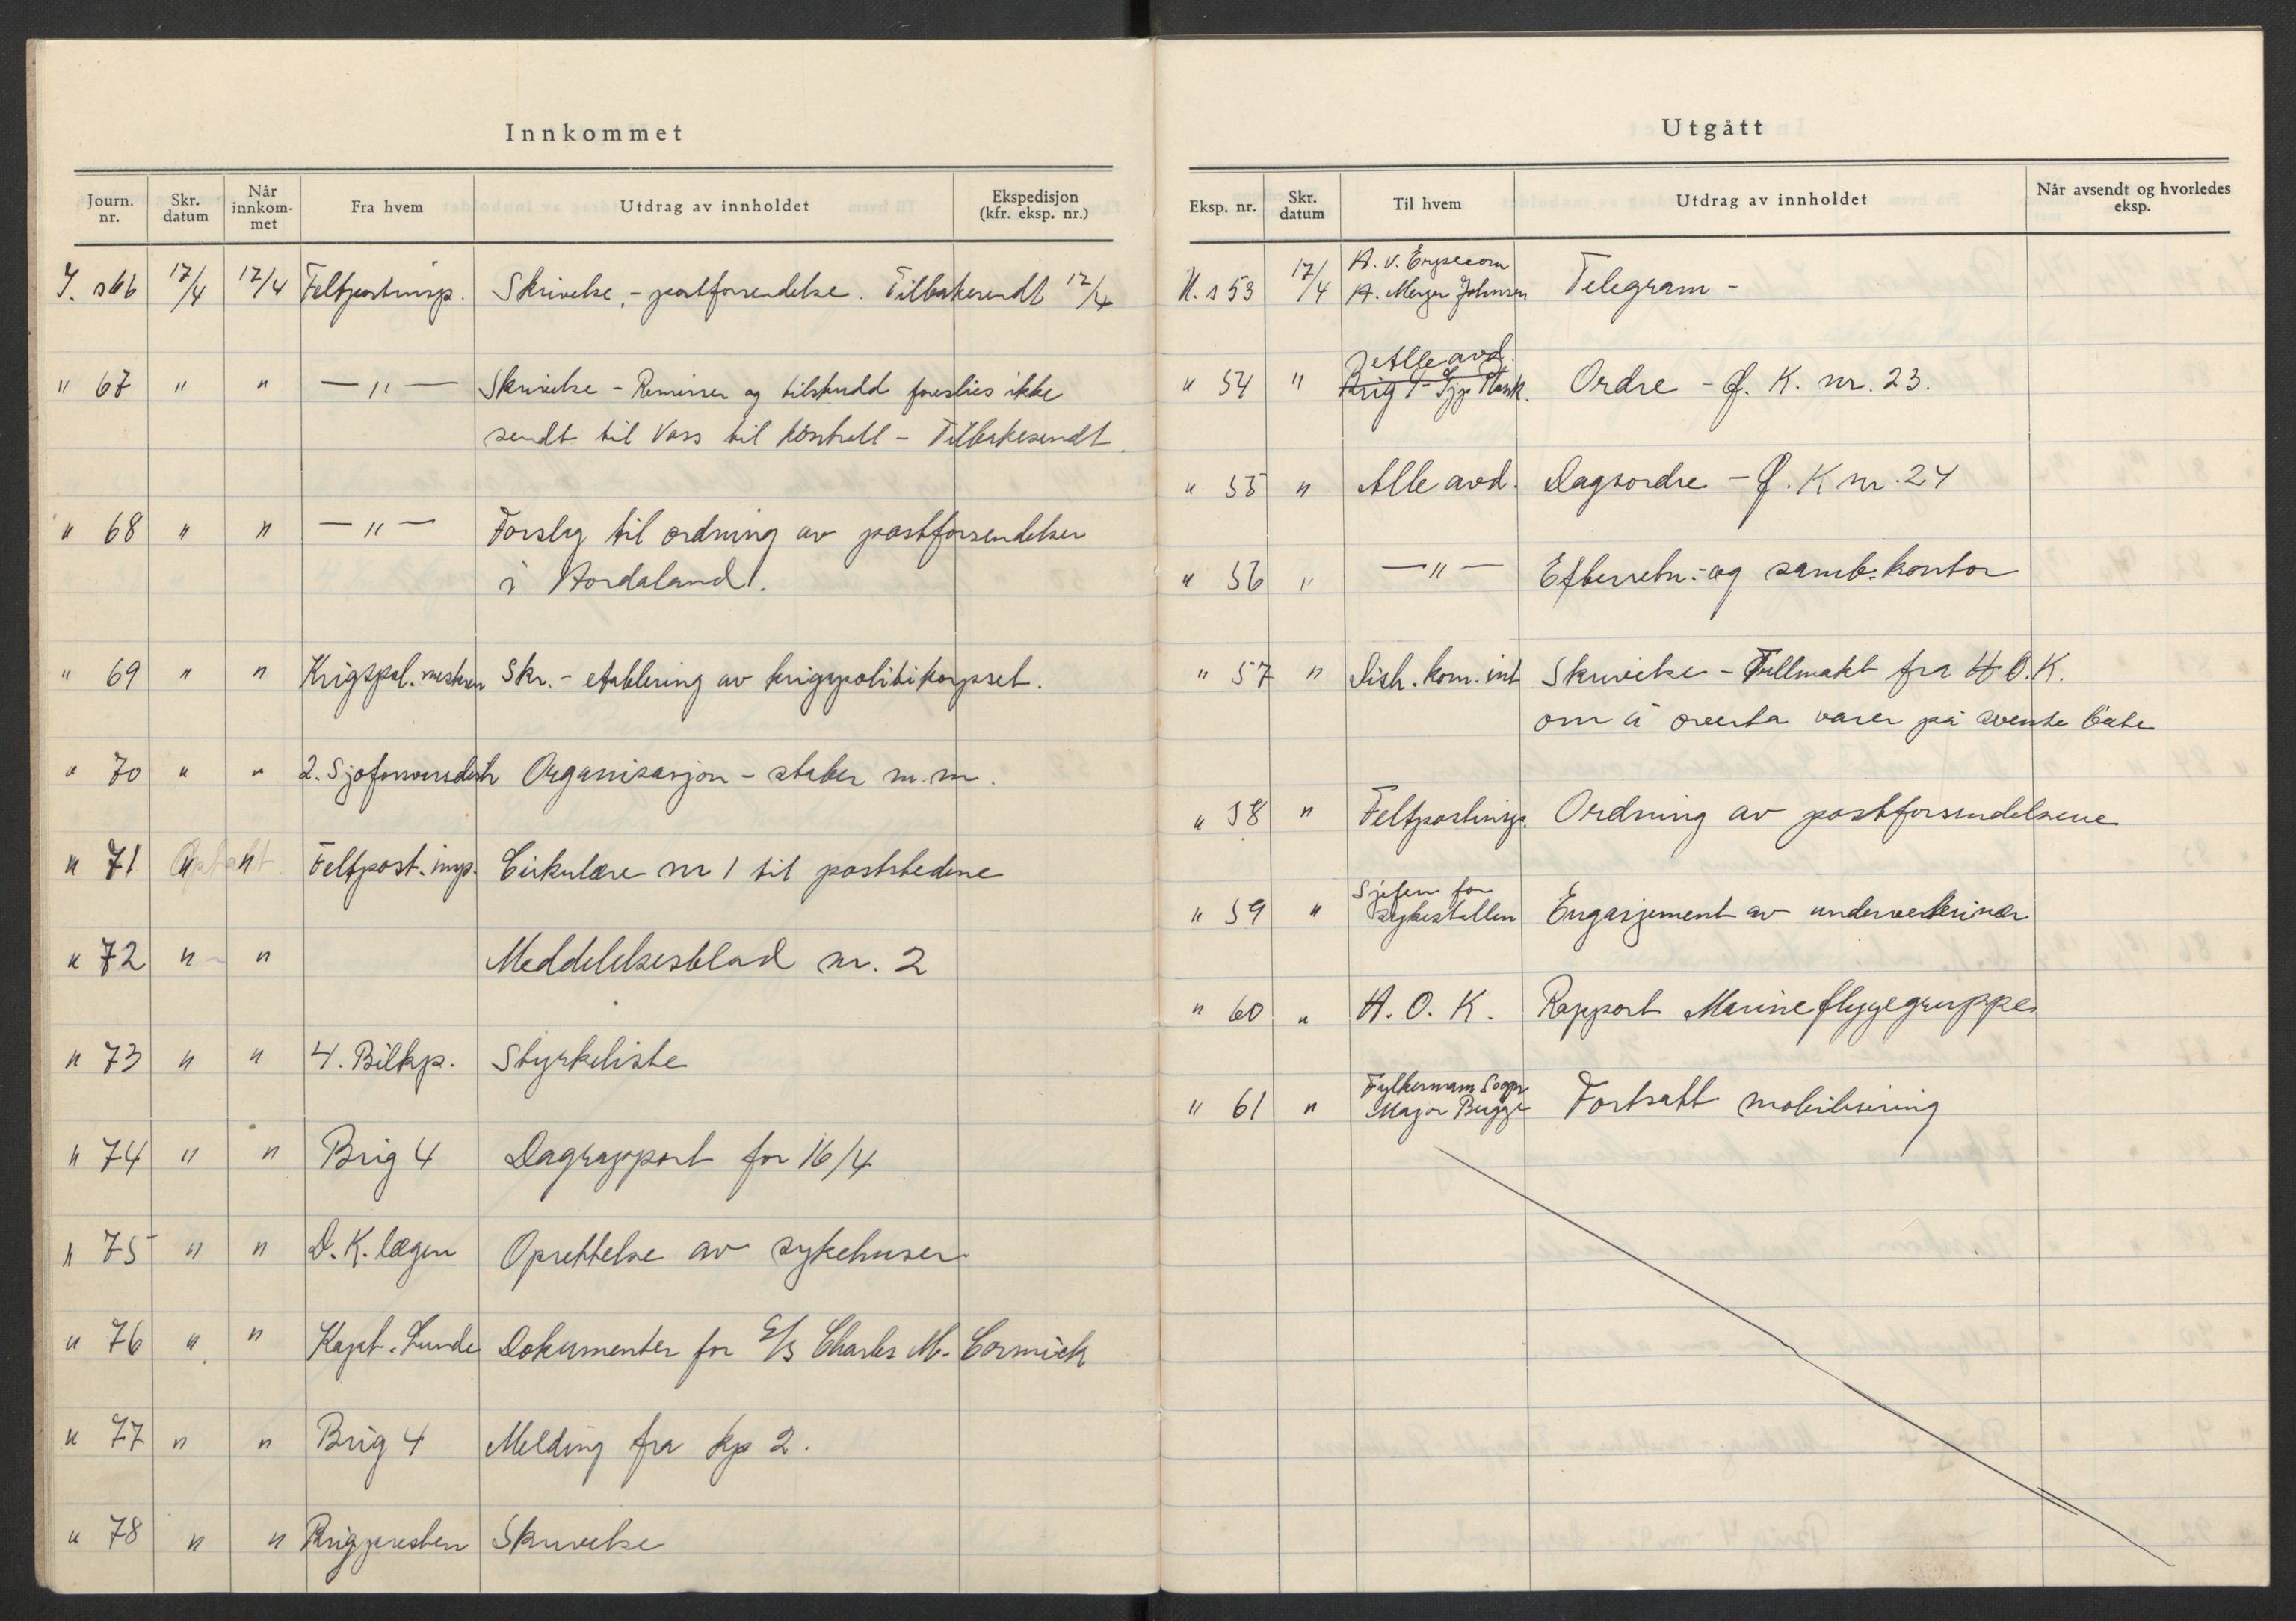 Innkommet
Journ. nr. Skr. datum Når innkom- met Fra hvem Utdrag av innholdet Ekspedisjon (kfr. eksp. nr.)
J. s66 17/4 17/4 Feltpostinsp. Skrivelse, - postforsendelse. Tilbakesendt 17/4
" 67 " " — " — Skrivelse - Remisser og tilskudd foreslåes ikke
sendt til Voss til kontroll - Tilbakesendt.
" 68 " " — " — Forslag til ordning av postforsendelser
i Hordaland.
" 69 " " Krigspol. mesteren Skr. - etablering av krigspolitikorpset.
" 70 " " 2. Sjøforsvarsdistr Organisasjon - staber m.m.
" 71 " " Feltpost. insp. Cirkulære nr 1 til poststedene
" 72 " " Meddelelsesblad nr. 2
" 73 " " 4. Bilkp. Styrkeliste
" 74 " " Brig 4 Dagrapport for 16/4
" 75 " " D.K. lægen Oprettelse av sykehuser
" 76 " " Kapt. Lunde Dokumenter for S/S Charles Mc. Cormick
" 77 " " Brig 4 Melding fra kp 2.
" 78 " " Krigspresten Skrivelse
Utgått
Eksp. nr. Skr. datum Til hvem Utdrag av innholdet Når avsendt og hvorledes eksp.
U. s 53 17/4 A. v. 
A. Meyer Johnsen Telegram -
Alle avd.
" 54 " Brig 4 - Ordre - Ø. K. nr. 23.
" 55 " Alle avd. Dagsordre - Ø. K nr. 24
" 56 " — " — Efterretn.- og samb. kontor
" 57 " Distr. kom. int Skrivelse - Fullmakt fra H.O.K.
om å overta varer på svenske båte
" 58 " Feltpostinsp. Ordning av postforsendelsene
Sjefen for
" 59 " sykestallen Engasjement av underveterinær
" 60 " H. O. K. Rapport Marineflygegruppen
Fylkesmann Sogn
" 61 " Major Bugge Fortsatt mobilisering